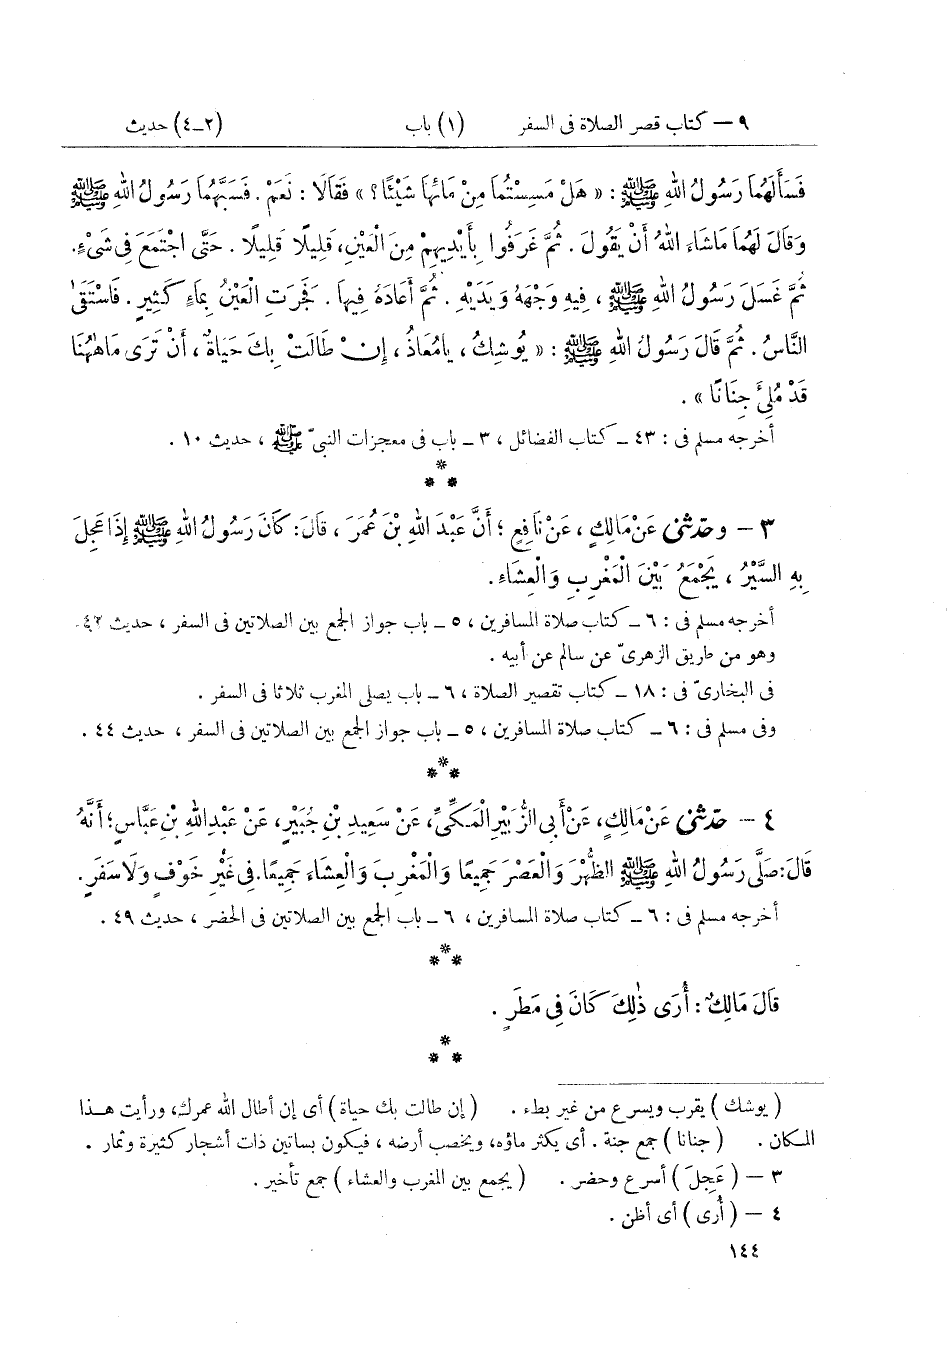 ٩ – كتاب قصر الصلاة فى السفر (١) باب (٢–٤) حديث
فَسَأَلَهُمَا رَسُولُ اللهِ ﷺ : « هَلْ مَسِسْتُمَا مِنْ مَائِهَا شَيْئًا ؟ » فَقَالَا : نَعَمْ . فَسَبَّهُمَا رَسُولُ اللهِ ﷺ
وَقَالَ لَهُمَا مَاشَاءَ اللهُ أَنْ يَقُولَ . ثُمَّ غَرَفُوا بِأَيْدِيهِمْ مِنَ الْعَيْنِ، قَلِيلًا قَلِيلًا . حَتَّى اجْتَمَعَ فِى شَىْءٍ.
ثُمَّ غَسَلَ رَسُولُ اللهِ ﷺ ، فِيهِ وَجْهَهُ وَيَدَيْهِ . ثُمَّ أَعَادَهُ فِيهَا . فَجَرَتِ الْعَيْنُ بِمَاءٍ كَثِيرٍ . فَاسْتَقَى
النَّاسُ . ثُمَّ قَالَ رَسُولُ اللهِ ﷺ : « يُوشِكُ ، يَامُعَاذُ ، إِنْ طَالَتْ بِكَ حَيَاةٌ ، أَنْ تَرَى مَاهٰهُنَا
قَدْ مُلِئَ جِنَانًا » .
أخرجه مسلم فى : ٤٣ ـ كتاب الفضائل ، ٣ ـ باب فى معجزات النبىّ ﷺ ، حديث ١٠ .
*
* *
٣ – وحدّثنى عَنْ مَالِكٍ ، عَنْ نَافِعٍ ؛ أَنَّ عَبْدَ اللهِ بْنَ عُمَرَ ، قَالَ: كَانَ رَسُولُ اللهِ ﷺ إِذَا عَجِلَ
بِهِ السَّيْرُ ، يَجْمَعُ بَيْنَ الْمَغْرِبِ وَالْعِشَاءِ.
أخرجه مسلم فى : ٦ ـ كتاب صلاة المسافرين ، ٥ ـ باب جواز الجمع بين الصلاتين فى السفر ، حديث ٤٢.
وهو من طريق الزهرىّ عن سالم عن أبيه .
فى البخارىّ فى : ١٨ ـ كتاب تقصير الصلاة ، ٦ ـ باب يصلى المغرب ثلاثا فى السفر .
وفى مسلم فى : ٦ ـ كتاب صلاة المسافرين ، ٥ ـ باب جواز الجمع بين الصلاتين فى السفر ، حديث ٤٤ .
*
* *
٤ – حدّثنى عَنْ مَالِكٍ، عَنْ أَبِى الزُّبَيْرِ الْمَكِّىِّ، عَنْ سَعِيدِ بْنِ جُبَيْرٍ، عَنْ عَبْدِ اللهِ بْنِ عَبَّاسٍ؛ أَنَّهُ
قَالَ: صَلَّى رَسُولُ اللهِ ﷺ الظُّهْرَ وَالْعَصْرَ جَمِيعًا وَالْمَغْرِبَ وَالْعِشَاءَ جَمِيعًا. فِى غَيْرِ خَوْفٍ وَلَا سَفَرٍ .
أخرجه مسلم فى : ٦ ـ كتاب صلاة المسافرين ، ٦ ـ باب الجمع بين الصلاتين فى الحضر ، حديث ٤٩ .
*
* *
قَالَ مَالِكٌ : أُرَى ذٰلِكَ كَانَ فِى مَطَرٍ .
*
* *
( يوشك ) يقرب ويسرع من غير بطء . ( إن طالت بك حياة ) أى إن أطال الله عمرك، ورأيت هذا
المكان . ( جنانا ) جمع جنة . أى يكثر ماؤه، ويخصب أرضه ، فيكون بساتين ذات أشجار كثيرة وثمار .
٣ – ( عَجِلَ ) أسرع وحضر . ( يجمع بين المغرب والعشاء ) جمع تأخير .
٤ – ( أُرى ) أى أظن .
١٤٤